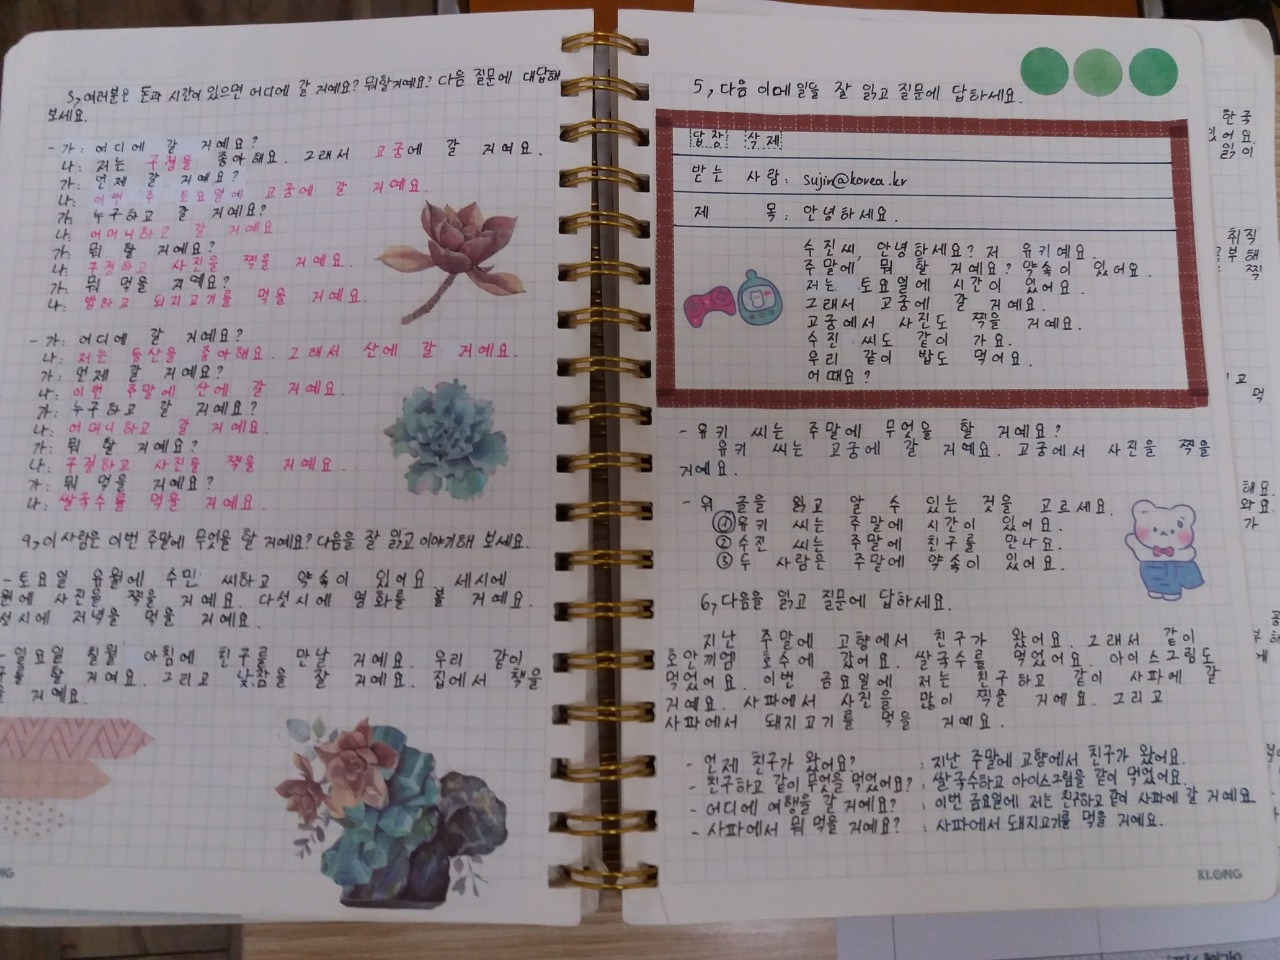 3, 여러분은 돈과 시간이 있으면 어디에 갈 거예요? 뭐할거예요? 다음 질문에 대답해
보세요.
- 가: 어디에 갈 거예요?
나: 저는 구경을 좋아해요. 그래서 고궁에 갈 거예요.
가: 언제 갈 거예요?
나: 이번 주 토요일에 고궁에 갈 거예요.
가: 누구하고 갈 거예요?
나: 어머니하고 갈 거예요
가: 뭐 할 거예요?
나: 구경하고 사진을 찍을 거예요.
가: 뭐 먹을 거예요?
나: 밥하고 되지고기를 먹을 거예요.
- 가: 어디에 갈 거예요?
나: 저는 등산을 좋아해요. 그래서 산에 갈 거예요.
가: 언제 갈 거예요?
나: 이번 주말에 산에 갈 거예요.
가: 누구하고 갈 거예요?
나: 어머니하고 갈 거예요.
가: 뭐 할 거예요?
나: 구경하고 사진을 찍을 거예요.
가: 뭐 먹을 거예요?
나: 쌀국수를 먹을 거예요.
이 사람은 이번 주말에 무엇을 할 거예요? 다음을 잘 읽고 이야기해 보세요.
- 토요일 유월에 수민 씨하고 약속이 있어요. 세시에
에 사진을 찍을 거예요. 다섯시에 영화를 볼 거예요.
시에 저녁을 먹을 거예요.
- 일요일 칠월 아침에 친구를 만날 거예요. 우리 같이
할 거예요. 그리고 낮잠을 잘 거예요. 집에서 책을
거예요.
5, 다음 이메일을 잘 읽고 질문에 답하세요.
답장: 삭제
받는 사람: sujin@korea.kr
제 목: 안녕하세요.
수진씨, 안녕하세요? 저 유키예요.
주말에 뭐 할 거예요? 약속이 있어요.
저는 토요일에 시간이 있어요.
그래서 고궁에 갈 거예요.
고궁에서 사진도 찍을 거예요.
수진 씨도 같이 가요.
우리 같이 밥도 먹어요.
어때요?
- 유키 씨는 주말에 무엇을 할 거예요?
유키 씨는 고궁에 갈 거예요. 고궁에서 사진을 찍을
거예요.
- 위 글을 읽고 알 수 있는 것을 고르세요.
① 유키 씨는 주말에 시간이 있어요.
② 수진 씨는 주말에 친구를 만나요.
③ 두 사람은 주말에 약속이 있어요.
6, 다음을 읽고 질문에 답하세요.
지난 주말에 고향에서 친구가 왔어요. 그래서 같이
호안끼엠 호수에 갔어요. 쌀국수를 먹었어요. 아이스그림도
먹었어요. 이번 금요일에 저는 친구하고 같이 사파에 갈
거예요. 사파에서 사진을 많이 찍을 거예요. 그리고
사파에서 돼지고기를 먹을 거예요.
- 언제 친구가 왔어요? : 지난 주말에 고향에서 친구가 왔어요.
- 친구하고 같이 무엇을 먹었어요? : 쌀국수하고 아이스그림을 같이 먹었어요
- 어디에 여행을 갈 거예요? : 이번 금요일에 저는 친구하고 같이 사파에 갈 거예요
- 사파에서 뭐 먹을 거예요? : 사파에서 돼지고기를 먹을 거예요.
KLONG
한국
어요.
읽이
취직
부 해
찍
고
먹
해요.
와요.
가